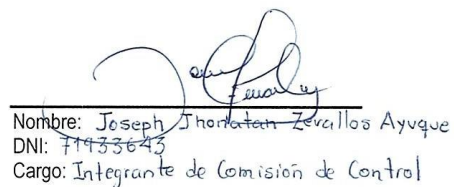 Nombre: Joseph Jhonatan Zevallos Ayuque
DNI: 71933643
Cargo: Integrante de Comisión de Control